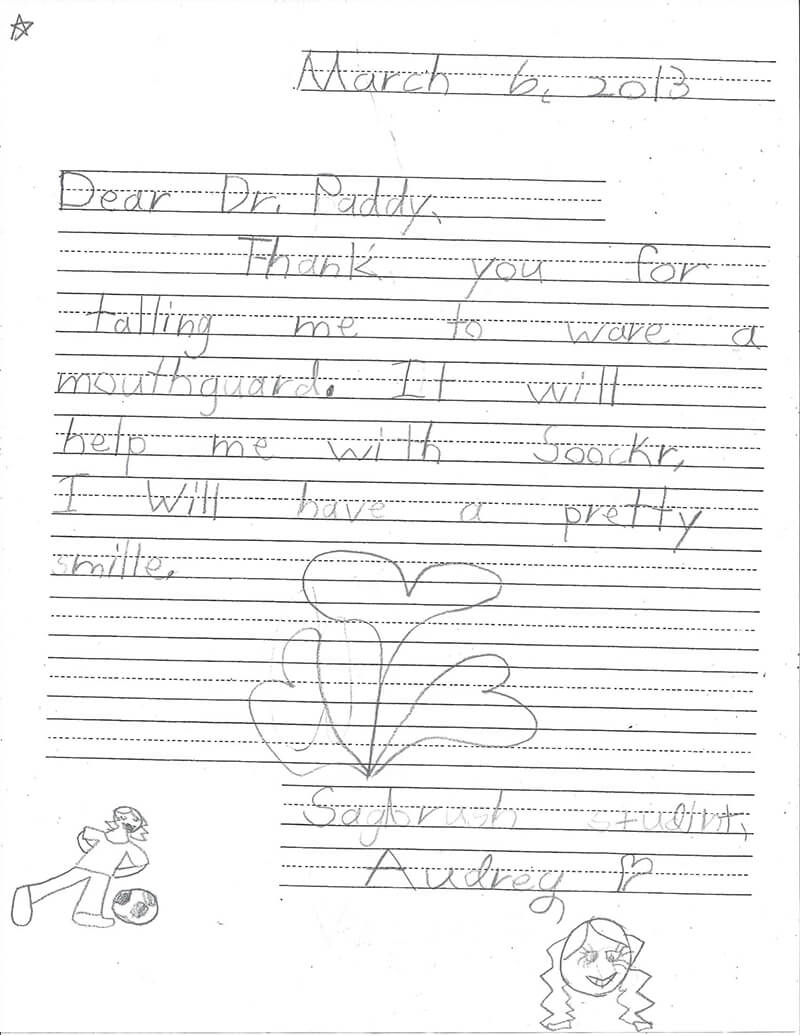 March 6, 2013
Dear Dr. Paddy,
Thank you for
talling me to ware a
mouthguard. It will
help me with Soockr,
I will have a pretty
smille.
Sagbrush studint,
Audrey